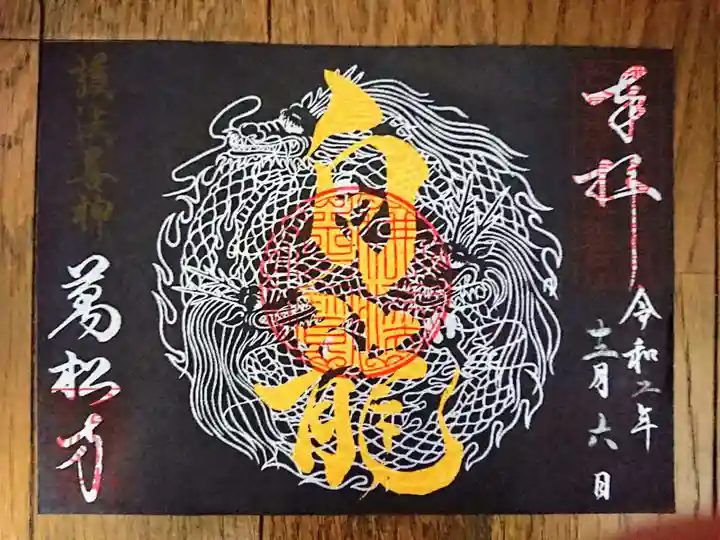 奉拝
令和二年
十二月六日
白龍
護法善神
萬松寺